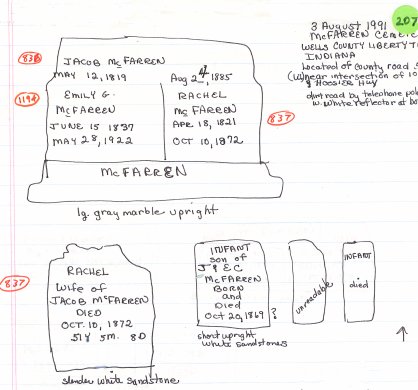 207
3 August 1991
McFARREN CEMETE
WELLS COUNTY LIBERTY T
INDIANA
Located of county road
near intersection of 10
& Hoosier Hwy
dirt road by telephone pole
w. white reflector at bo
836
JACOB McFARREN
MAY 12, 1819 Aug 24, 1885
1194
EMILY G.
McFARREN
JUNE 15 1837
MAY 28, 1922
RACHEL
McFARREN
APR 18, 1821
OCT 10, 1872
837
McFARREN
lg. gray marble upright
837
RACHEL
Wife of
JACOB McFARREN
DIED
OCT. 10, 1872
51Y 5M. 8D
slender white sandstone
INFANT
son of
J & E C
McFARREN
BORN
and
Died
Oct 20, 1869 ?
short upright
white sandstones
unreadable
INFANT
died